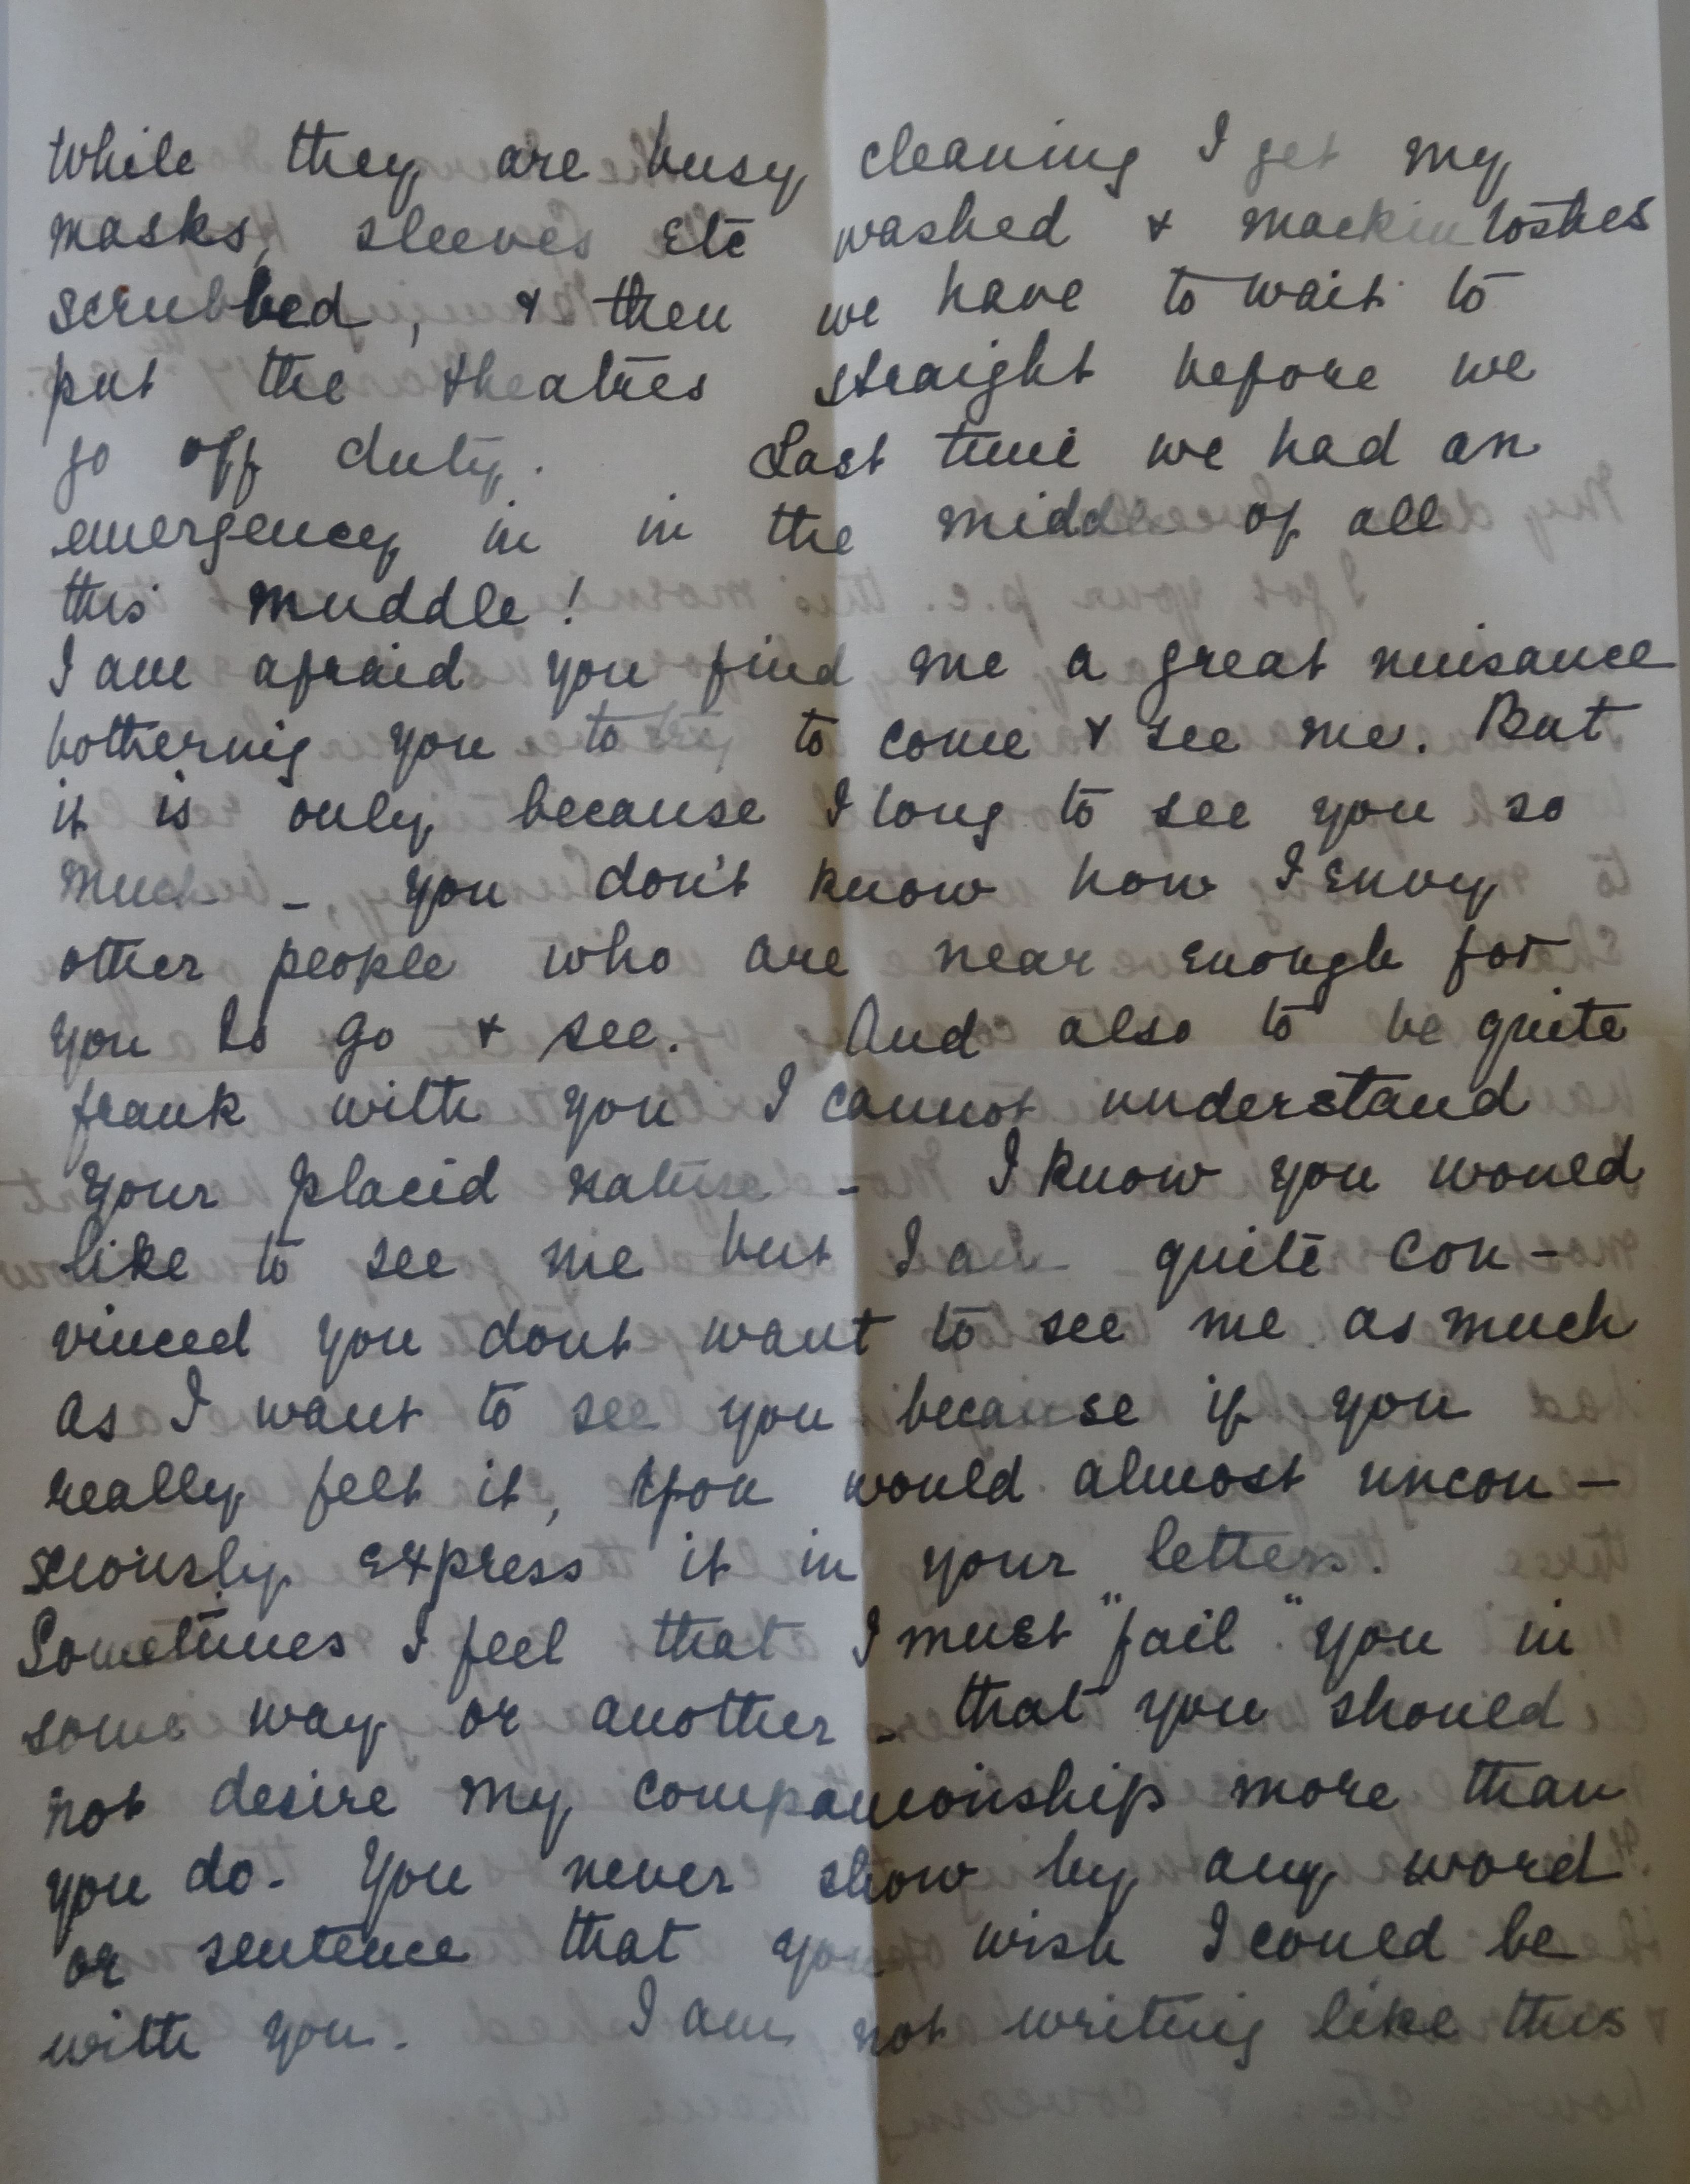 While they are busy cleaning I get my
masks, sleeves etc washed & mackintoshes
scrubbed, & then we have to wait to
put the theatres straight before we
go off duty. Last time we had an
emergency in in the middle of all
this muddle!
I am afraid you find me a great nuisance
bothering you to to come & see me. But
it is only because I long to see you so
much - you don't know how I envy
other people who are near enough for
you to go & see. And also to be quite
frank with you I cannot understand
your placid nature - I know you would
like to see me but I am quite con-
vinced you dont want to see me as much
as I want to see you because if you
really felt it, you would almost uncon-
sciously express it in your letters.
Sometimes I feel that I must "fail" you in
some way or another - that you should
not desire my companionship more than
you do. You never show by any word
or sentence that you wish I could be
with you. I am not writing like this